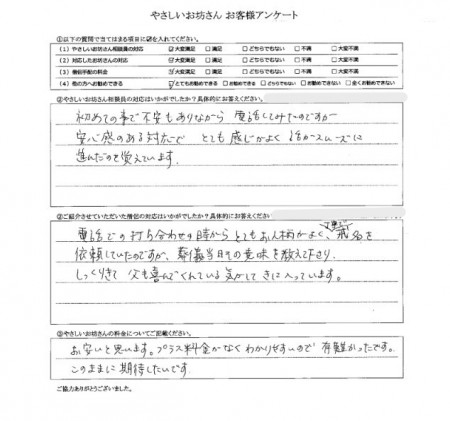 やさしいお坊さん お客様アンケート
①以下の質問で当てはまる項目に☑を入れてください。
(1) やさしいお坊さん相談員の対応 ☑大変満足 □満足 □どちらでもない □不満 □大変不満
(2) 対応したお坊さんの対応 ☑大変満足 □満足 □どちらでもない □不満 □大変不満
(3) 僧侶手配の料金 ☑大変満足 □満足 □どちらでもない □不満 □大変不満
(4) 他の方へお勧めできる ☑とてもお勧めできる □お勧めできる □どちらでもない □お勧めできない □全くお勧めできない
②やさしいお坊さん相談員の対応はいかがでしたか?具体的にお答えください。
初めての事で不安もありながら 電話してみたのですが
安心感のある対応で とても感じがよく 話がスムーズに
進んだのを覚えています。
②ご紹介させていただいた僧侶の対応はいかがでしたか?具体的にお答えください
電話での打ち合わせの時から とてもお人柄がよく、戒名を
依頼していたのですが、葬儀当日その意味を教えて下さり
しっくりきて 父も喜んでくれている気がして 気に入っています。
③やさしいお坊さんの料金についてご記載ください。
お安いと思います。プラス料金がなくわかりやすいので 有難かったです。
このままに期待したいです。
ご協力ありがとうございました。